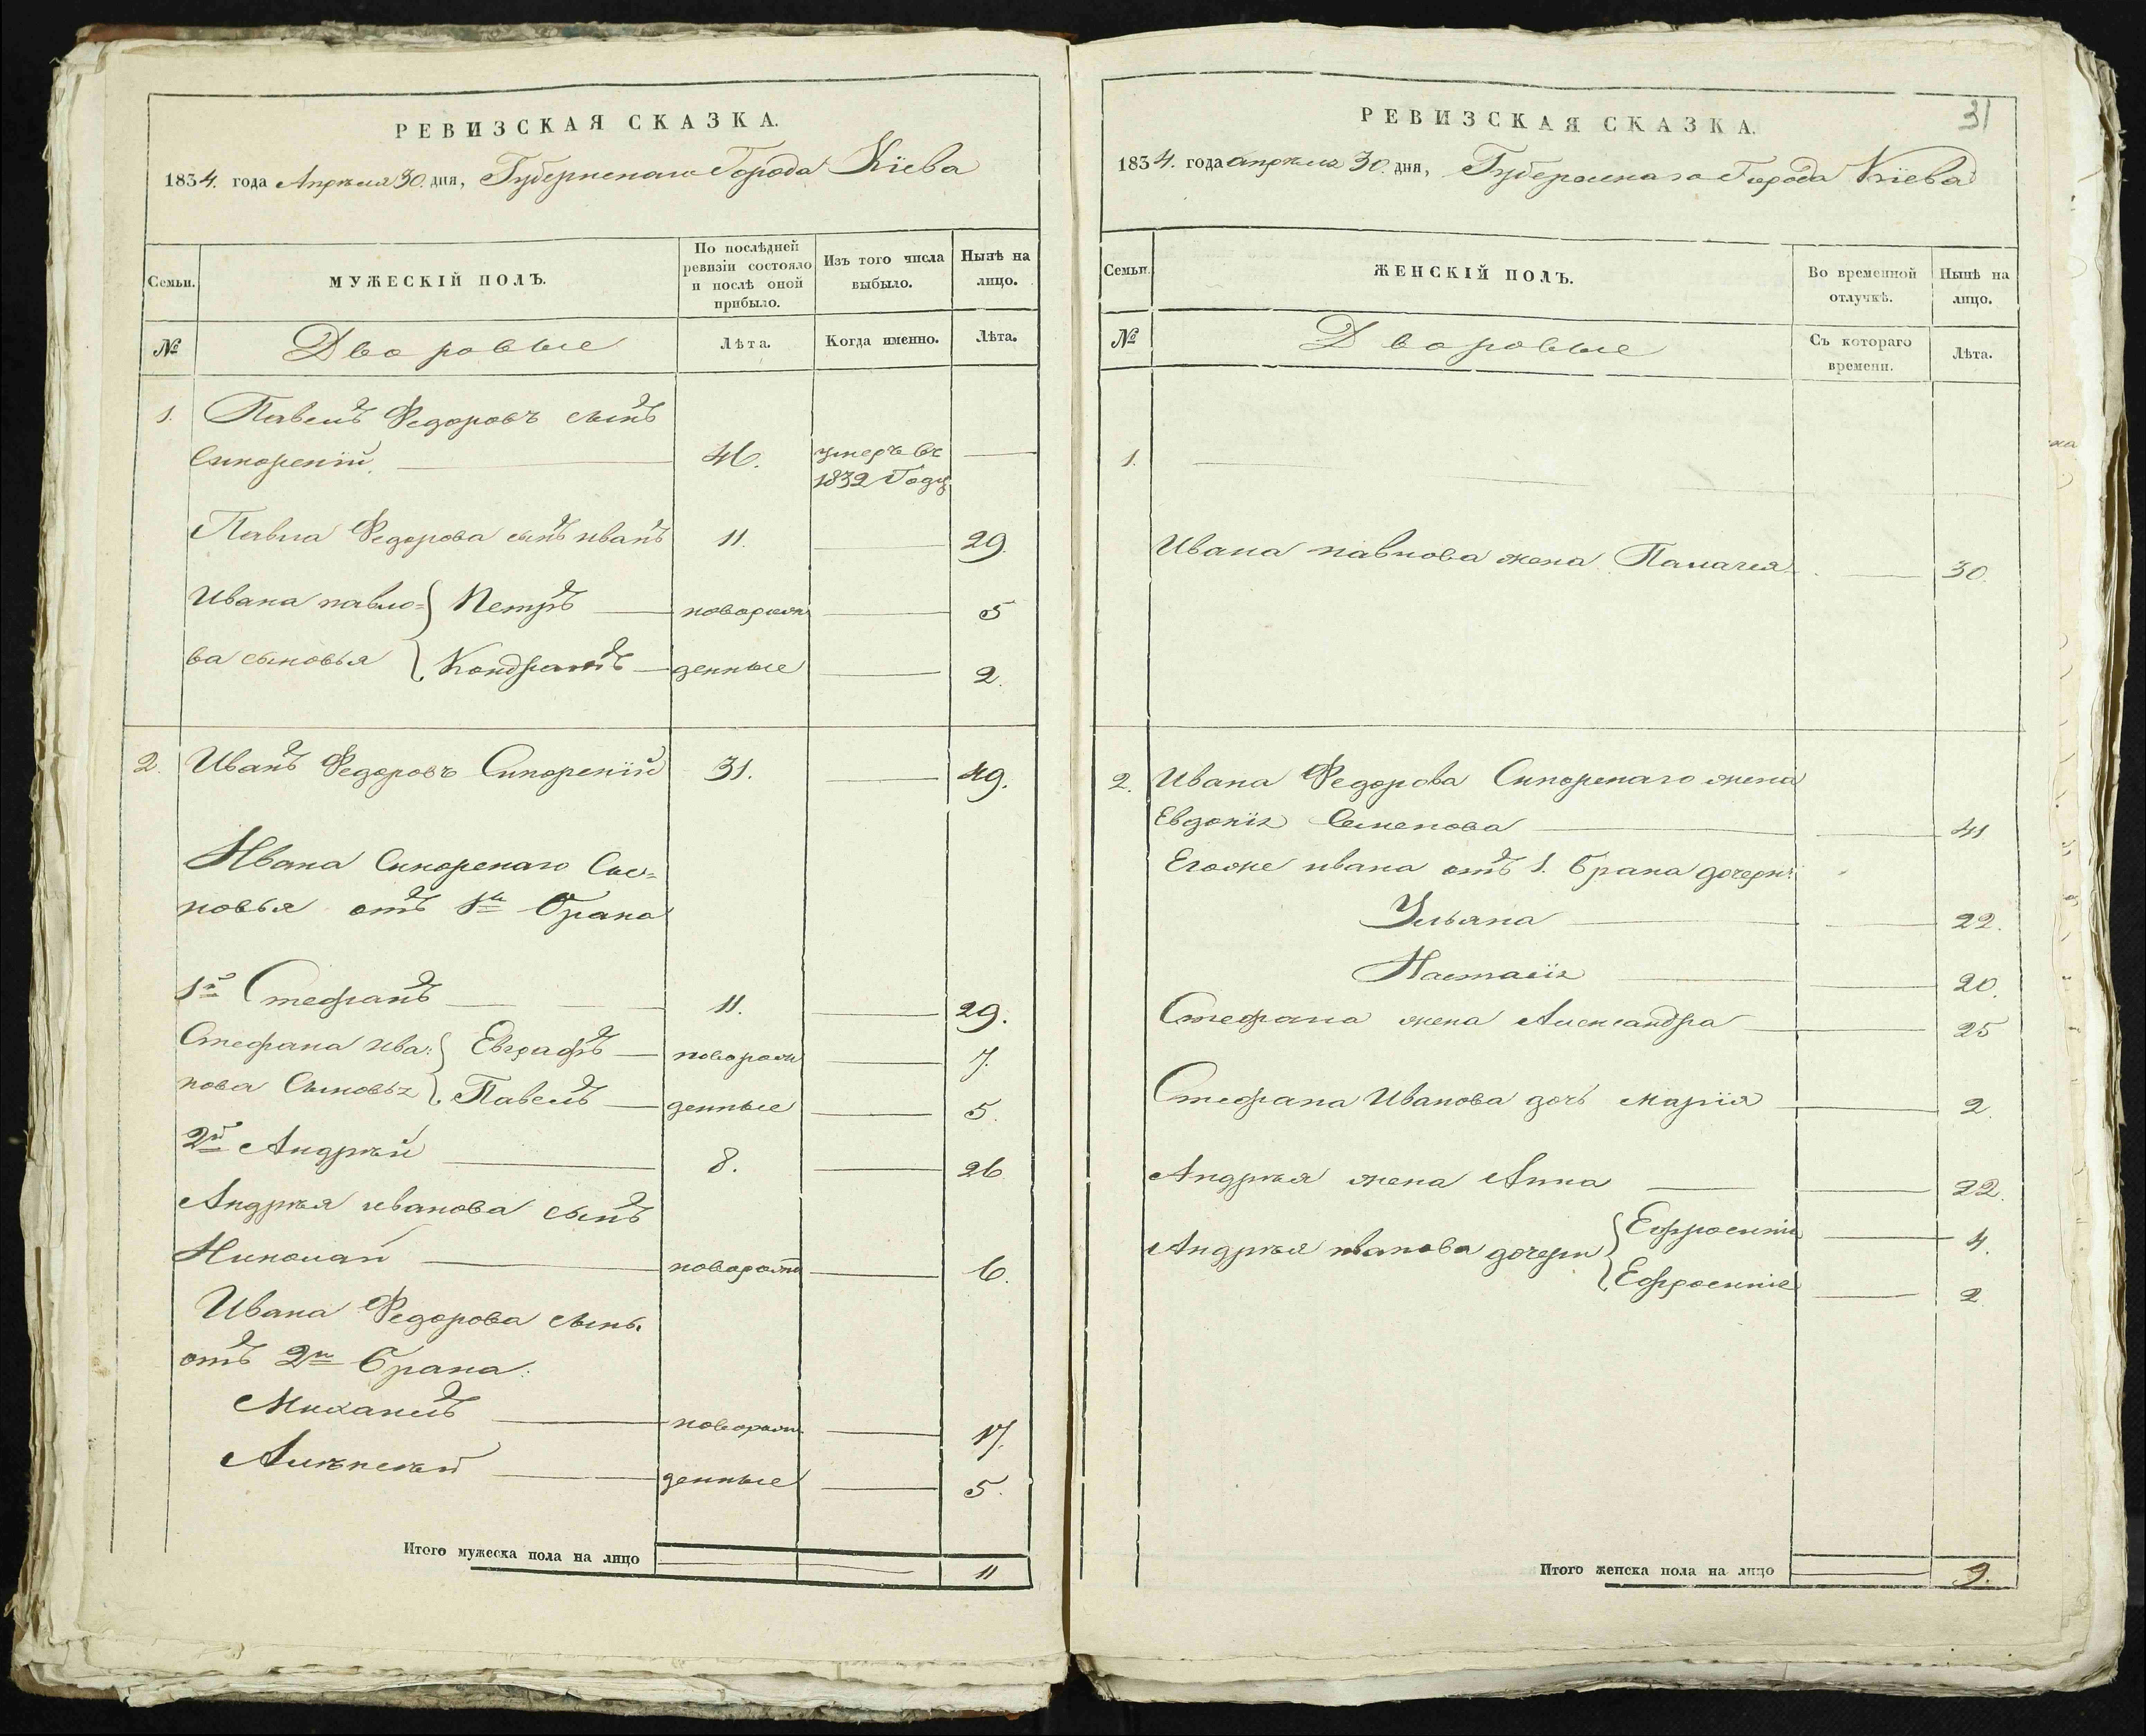 РЕВИЗСКАЯ СКАЗКА.
1834. года Апрѣля 30. дня, Губернскаго Города Кіева
Семьи.
МУЖЕСКІЙ ПОЛЪ.
По послѣдней ревизіи состояло и послѣ оной прибыло.
Изъ того числа выбыло.
Нынѣ на лицо.
№
Дворовые
Лѣта.
Когда именно.
Лѣта.
1. Павелъ Федоровъ сынъ
46. умеръ въ
1832 Году
Павла Федорова сынъ иванъ 11. 29.
Ивана павло= Петръ новорож 5
ва сыновья Кондратъ денные 2.
2. Иванъ Федоровъ 31. 49.
Ивана Сы=
новья отъ 1го брака
1й Стефанъ 11. 29.
Стефана ива: Евграфъ новорож 7.
нова Сыновья Павелъ денные 5.
2й Андрѣй 8. 26
Андрѣя иванова сынъ
Николай новорож 6.
Ивана Федорова сынъ
отъ 2го брака:
Михаилъ новорож 17.
Алѣксѣй денные 5.
Итого мужеска пола на лицо 11
31
РЕВИЗСКАЯ СКАЗКА.
1834. года апрѣля 30. дня, Губернскаго Города Кіева
Семьи.
ЖЕНСКІЙ ПОЛЪ.
Во временной отлучкѣ.
Нынѣ на лицо.
№
Дворовые
Съ котораго времени.
Лѣта.
1.
Ивана павлова жена Палагея 30.
2. Ивана Федорова жена
Евдокія Семенова 41
Егоже ивана отъ 1. брака дочери:
Ульяна 22.
Настасія 20.
Стефана жена Александра 25
Стефана Иванова дочь марія 2.
Андрѣя жена Анна 22.
Андрѣя иванова дочери Ефросинія 4.
Ефросинія 2
Итого женска пола на лицо 9.